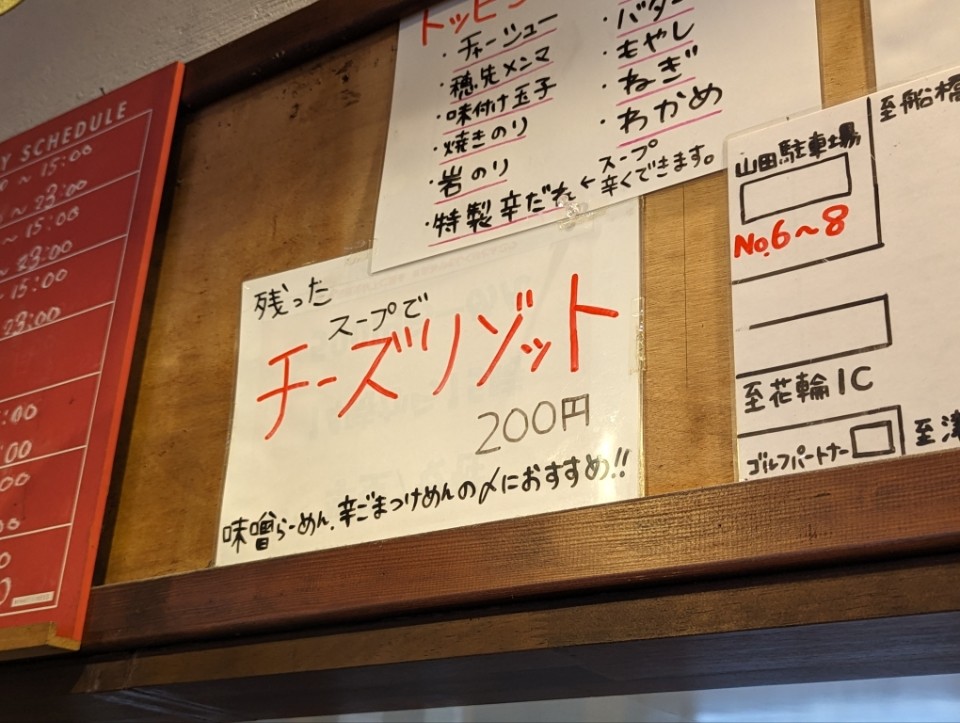 SCHEDULE
15:00
~23:00
~15:00
~23:00
~15:00
23:00
:00
:00
:00
トッピ
・チャーシュー
・穂先メンマ
・味付け玉子
・焼きのり
・岩のり
・特製辛だれ←スープ辛くできます。
・バター
・もやし
・ねぎ
・わかめ
残った
スープで
チーズリゾット
200円
味噌らーめん、辛ごまつけめんの〆におすすめ!!
至船橋
山田駐車場
No.6~8
至花輪IC
ゴルフパートナー
至津